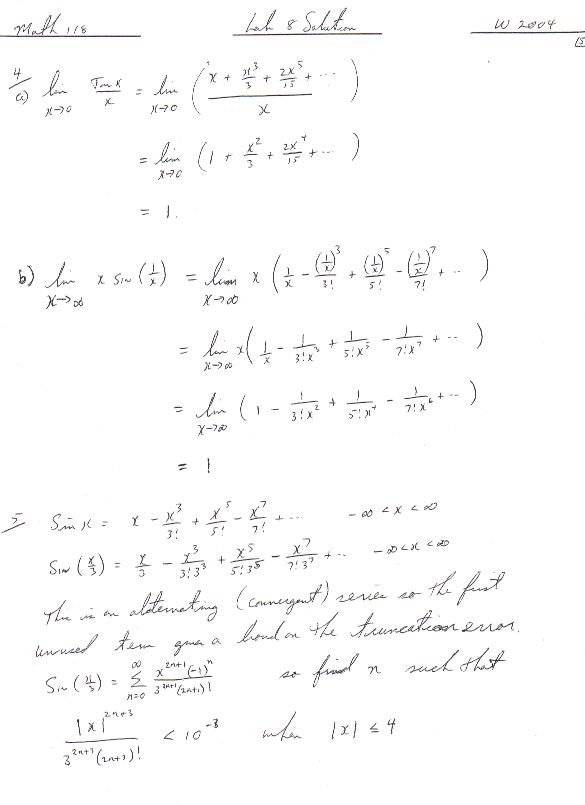 Math 118 Lab 8 Solution W 2004
15
4/a) lim x→0 Tan x / x = lim x→0 ( (x + x^3/3 + 2x^5/15 + ...) / x )
= lim x→0 (1 + x^2/3 + 2x^4/15 + ... )
= 1.
b) lim x→∞ x sin(1/x) = lim x→∞ x (1/x - (1/x)^3/3! + (1/x)^5/5! - (1/x)^7/7! + ... )
= lim x→∞ x(1/x - 1/3!x^3 + 1/5!x^5 - 1/7!x^7 + ... )
= lim x→∞ (1 - 1/3!x^2 + 1/5!x^4 - 1/7!x^6 + ... )
= 1
5/ Sin x = x - x^3/3! + x^5/5! - x^7/7! + ... -∞ < x < ∞
Sin (x/3) = x/3 - x^3/3!3^3 + x^5/5!3^5 - x^7/7!3^7 + ... -∞ < x < ∞
This is an alternating (convergent) series so the first
unused term gives a bound on the truncation error.
Sin (x/3) = Σ n=0 ∞ x^{2n+1}(-1)^n / 3^{2n+1}(2n+1)! so find n such that
|x|^{2n+3} / 3^{2n+3}(2n+3)! < 10^{-3} when |x| ≤ 4